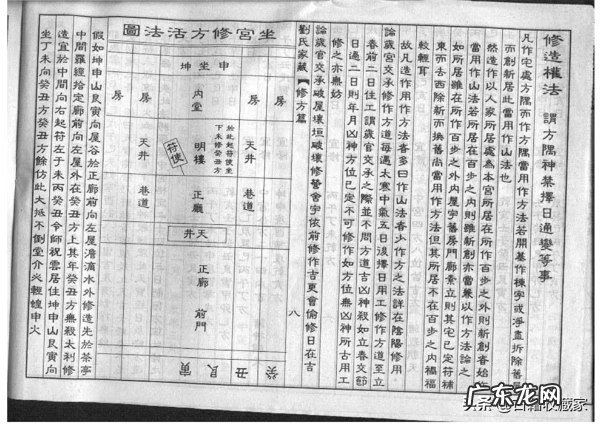 修造權法 謂方隅神禁擇日通變等事
凡作宅處方隅而作方隅當用作方法若開基作棟宇或凈盡折除舊屋
而創新居此當用作山法也
然造作以人家所居處為本宮所居在所作百步之外則新創者始
當用作山法若所居在所作百步之內則雖新創亦當兼以作方法論之
如所居雖在所作百步之外內屋宇舊房門廊素立則其宅已定符補
東而去西除新而換舊尚當用作方法但其所居不在百步之內禍福
較輕耳
故凡造作用作方法者多曰作山法者少作方之法詳在陰陽修用
論歲官交承修作方道每遇太寒中氣五日後擇日用工修作方道至立
春前二日住工謂歲官交承之際並不問方道吉凶神殺如立春交節
日過二日則年月凶神方位已定不可修作如方位無凶神所古用工
修之亦無妨
論歲官交承破屋壞垣破壞修營舍宇依前修作吉更會偷修日在吉
劉氏家藏【修方篇
八
坐宮修方活法圖
坤坐申
房
房
內堂
房
房
天井
明樓
於此起符使坐
下未修癸丑方
符使
天井
巷道
正廳
巷道
天井
正廊
前門
癸丑艮寅
假如坤申山艮寅向屋谷於正廊前向左屋澹滴水外修造先於茶亭
中間羅經格定廊前向左屋外在癸丑方上其年癸丑方無殺太利修
造宜於中間向右起符左于未丙癸丑令師祝雲居住坤申山艮寅向
坐丁未向癸丑方癸丑方餘仿此大抵不倒堂介火輕蝗申火
头条@古籍收藏家
广东龙网